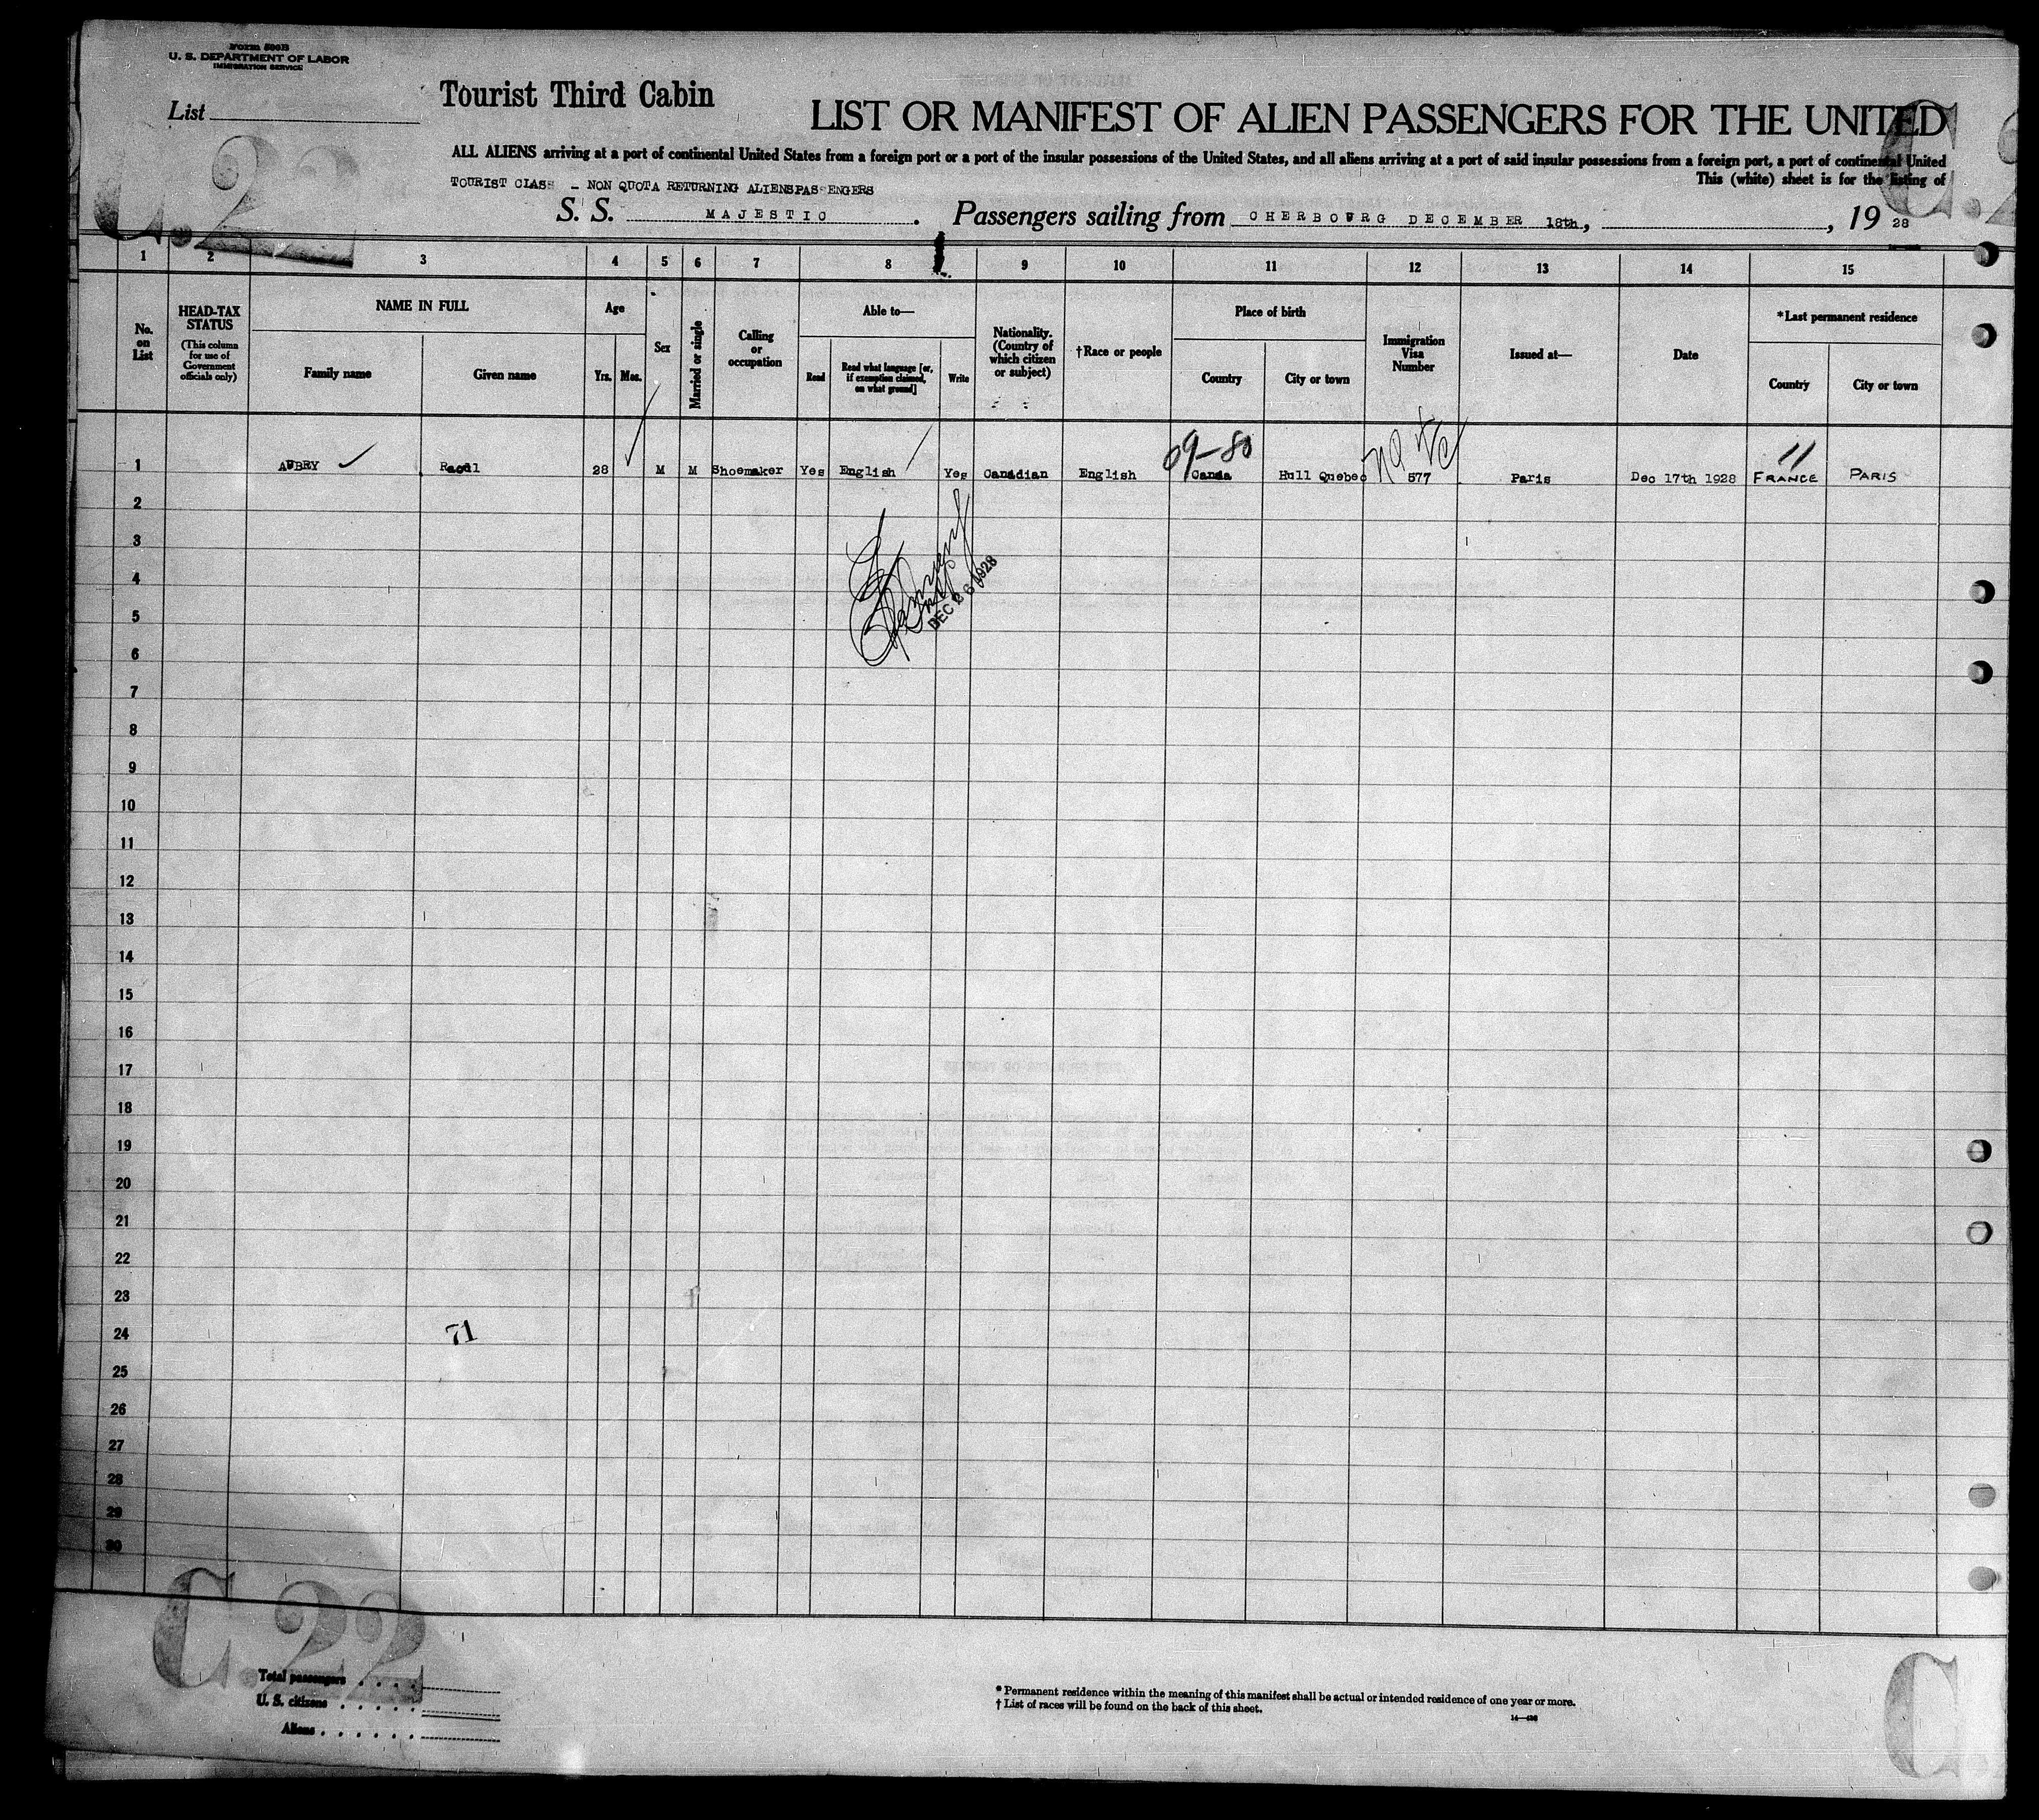 Form 500B
U. S. DEPARTMENT OF LABOR
IMMIGRATION SERVICE
List
Tourist Third Cabin
LIST OR MANIFEST OF ALIEN PASSENGERS FOR THE UNITED
ALL ALIENS arriving at a port of continental United States from a foreign port or a port of the insular possessions of the United States, and all aliens arriving at a port of said insular possessions from a foreign port, a port of continental United
TOURIST CLASS - NON QUOTA RETURNING ALIENSPASSENGERS
This (white) sheet is for the listing of
C.22
S. S. MAJESTIC. Passengers sailing from CHERBOURG DECEMBER 18th, , 19 28
1 2 3 4 5 6 7 8 9 10 11 12 13 14 15
No. on List
HEAD-TAX STATUS
(This column for use of Government officials only)
NAME IN FULL
Family name
Given name
Age
Yrs.
Mos.
Sex
Married or single
Calling or occupation
Able to—
Read
Read what language [or, if exemption claimed, on what ground]
Write
Nationality. (Country of which citizen or subject)
†Race or people
Place of birth
Country
City or town
Immigration Visa Number
Issued at—
Date
*Last permanent residence
Country
City or town
69-80
11
1 AUBRY Raoul 28 M M Shoemaker Yes English Yes Canadian English Canda Hull Quebec 577 Paris Dec 17th 1928 FRANCE PARIS
2
3
4
DEC 26 1928
5
6
7
8
9
10
11
12
13
14
15
16
17
18
19
20
21
22
23
24
71
25
26
27
28
29
30
C.22
C
Total passengers
U. S. citizens
Aliens
* Permanent residence within the meaning of this manifest shall be actual or intended residence of one year or more.
† List of races will be found on the back of this sheet.